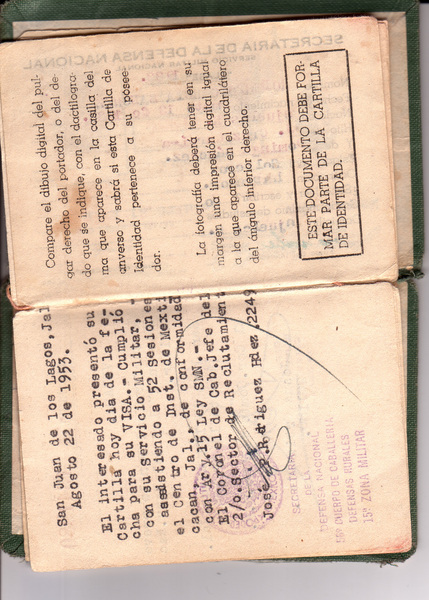 San Juan de los Lagos, Jal
Agosto 22 de 1953.
El interesado presentó su
Cartilla hoy dia de la fe-
cha para su VISA.- Cumplió
con su Servicio Militar,-
asistiendo a 52 Sesiones
el Centro de Inst. de Mexti
cacan Jal., de conformidad
con Ar. 15 Ley SMN.-
El Coronel de Cab. Jefe del
2/o. Sector de Reclutamient
José R. Rdriguez Hdez. 2249
SECRETARIA
DE LA
DEFENSA NACIONAL
CUERPO DE CABALLERIA
DEFENSAS RURALES
15ª ZONA MILITAR
SECRETARIA DE LA DEFENSA NACIONAL
Compare el dibujo digital del pul-
gar derecho del portador, o del de-
do que se indique, con el dactilogra-
ma que aparece en la casilla del
anverso y sabrá si esta Cartilla de
Identidad pertenece a su posee-
dor.
La fotografía deberá tener en su
margen una impresión digital igual
a la que aparece en el cuadrilátero
del ángulo inferior derecho.
ESTE DOCUMENTO DEBE FOR-
MAR PARTE DE LA CARTILLA
DE IDENTIDAD.